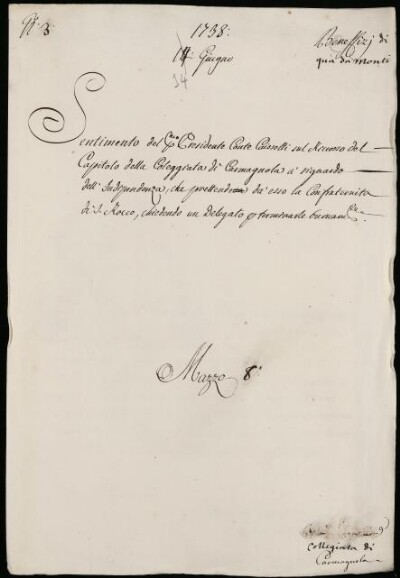 N.° 3.
1738:
14 Giugno
14
Beneffizj di
quà da monti
Sentimento del Pmo Presidente Conte Caissotti sul Ricorso del
Capitolo della Coleggiata di Carmagnola a' riguardo
dell' Independenza, che prettendeva da esso la Confraternita
di S. Rocco, chiedendo un Delegato p terminarle
Mazzo 8°
Collegiata di
Carmagnola